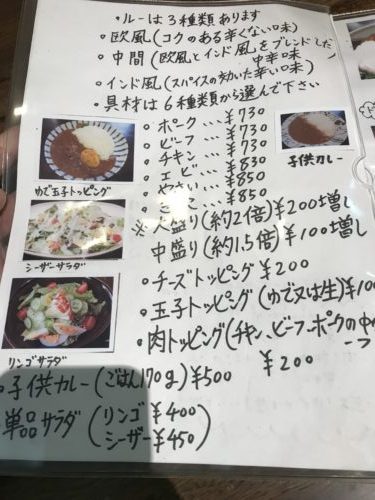 ・ルーは3種類あります
・欧風(コクのある辛くない味)
・中間(欧風とインド風をブレンドした
中辛味)
・インド風(スパイスの効いた辛い味)
・具材は6種類から選んで下さい
・ポーク…¥730
・ビーフ…¥730
・チキン…¥730
・エビ…¥830
・やさい…¥850
・きのこ…¥850
子供カレー
ゆで玉子トッピング
※大盛り(約2倍)¥200増し
中盛り(約1.5倍)¥100増し
シーザーサラダ
・チーズトッピング¥200
・玉子トッピング(ゆで又は生)¥100
・肉トッピング(チキン、ビーフ、ポークの中から
¥200
リンゴサラダ
・子供カレー(ごはん170g)¥500
単品サラダ(リンゴ¥400
シーザー¥450)